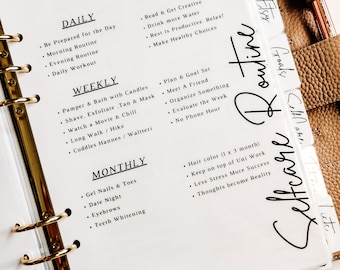 DAILY
• Be Prepared for the Day
• Morning Routine
• Evening Routine
• Daily Workout
• Read & Get Creative
• Drink more Water
• Rest is Productive. Relax!
• Make Healthy Choices
WEEKLY
• Pamper & Bath with Candles
• Shave, Exfoliate, Tan & Mask
• Watch a Movie & Chill
• Long Walk / Hike
• Cuddles Hannes / Walteri
• Plan & Goal Set
• Meet A Friend
• Organize Something
• Evaluate the Week
• No Phone Hour
MONTHLY
• Gel Nails & Toes
• Date Night
• Eyebrows
• Teeth Whitening
• Hair color (1 x 3 month)
• Keep on top of Uni Work
• Less Stress More Success
• Thoughts become Reality
Selfcare Routine
Goals